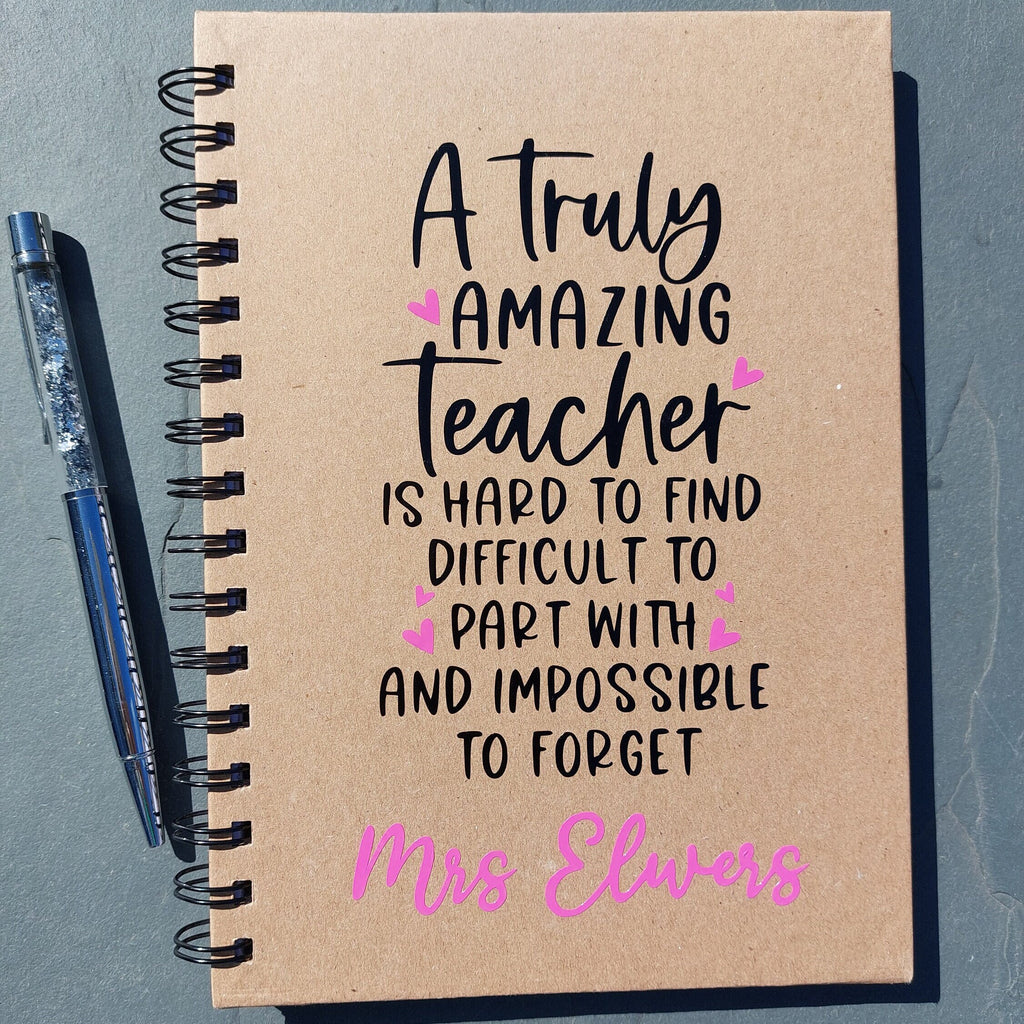 A Truly
AMAZING
Teacher
IS HARD TO FIND
DIFFICULT TO
PART WITH
AND IMPOSSIBLE
TO FORGET
Mrs Elwers